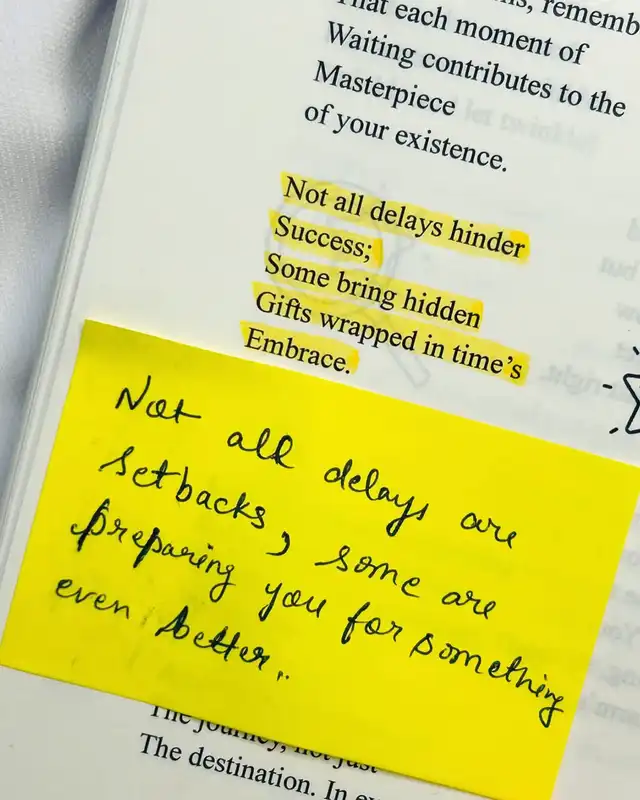 That each moment of
Waiting contributes to the
Masterpiece
of your existence.
Not all delays hinder
Success;
Some bring hidden
Gifts wrapped in time's
Embrace.
Not all delays are
setbacks, some are
preparing you for something
even better..
The journey, not just
The destination. In